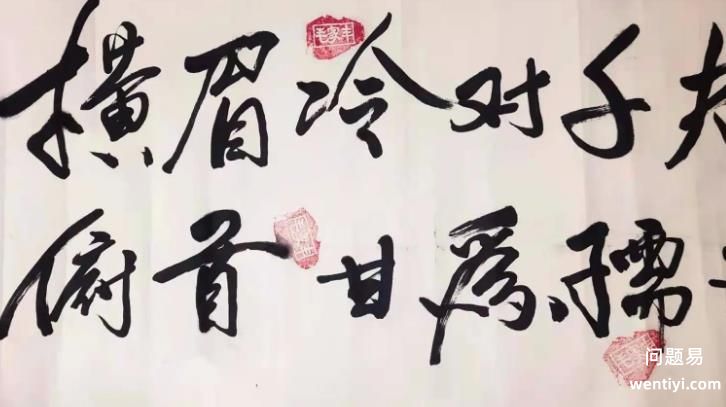 横眉冷对千夫
俯首甘為孺
毛家丰
问题易
wentiyi.com